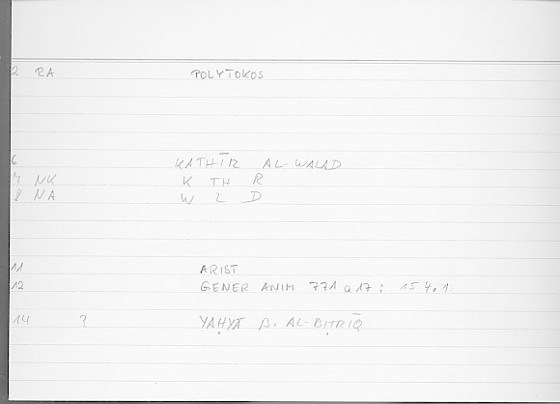 2 RA POLYTOKOS
6 KATHĪR AL-WALAD
7 NK K TH R
8 NA W L D
11 ARIST
12 GENER ANIM 771 a 17 : 154.1
14 ? YAḤYĀ B. AL-BIṬRĪQ